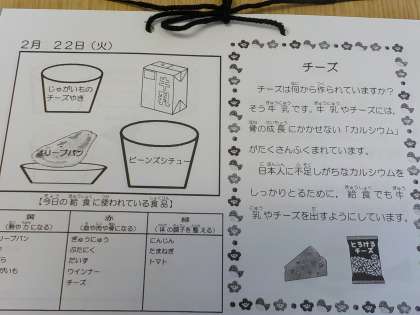 2月 22日(火)
じゃがいもの
チーズやき
牛乳
リーフパン
ビーンズシチュー
【今日の給食に使われている食品】
黄 赤 緑
(熱や力になる) (血や肉や骨になる) (体の調子を整える)
リーフパン ぎゅうにゅう にんじん
ぶたにく たまねぎ
だいず トマト
がいも ウインナー
チーズ
チーズ
チーズは何から作られていますか?
そう牛乳です。牛乳やチーズには、
骨の成長にかかせない「カルシウム」
がたくさんふくまれています。
日本人に不足しがちなカルシウムを
しっかりとるために、給食でも牛
乳やチーズを出すようにしています。
とろける
チーズ